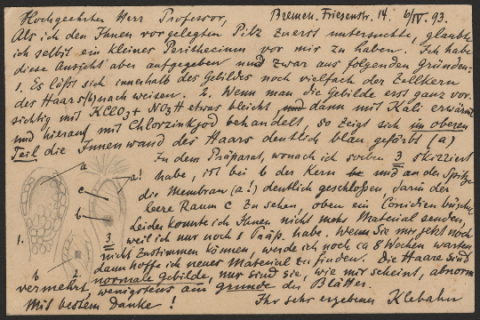 Hochgeehrter Herr Professor, Bremen. Friesenstr. 14. 6/IV. 93.
Als ich den Ihnen vorgelegten Pilz zuerst untersuchte, glaubte
ich selbst ein kleines Perithecium vor mir zu haben. Ich habe
diese Ansicht aber aufgegeben und zwar aus folgenden Gründen:
1. Es läßt sich innerhalb des Gebildes noch vielfach der Zellkern
des Haars nach weisen. 2. Wenn man die Gebilde erst ganz vor-
sichtig mit KClO3 + NO3H etwas bleicht und dann mit Kali erwärmt
und hierauf mit Chlorzinkjod behandelt, so zeigt sich im oberen
Teil die Innenwand des Haars deutlich blau gefärbt (a)
In dem Präparat, wonach ich soeben 3 skizziert
habe, ist bei b der Kern und an der Spitze
die Membran (a!) deutlich geschloßen, darin der
leere Raum c zu sehen, oben ein Conidien
Leider konnte ich Ihnen nicht mehr Material senden,
weil ich nur noch 1 Präp. habe. Wenn Sie mir jetzt noch
nicht zustimmen können, werde ich noch ca 8 Wochen warten
dann hoffe ich neues Material zu finden. Die Haare sind
normale Gebilde, nur sind sie, wie mir scheint, abnorm
vermehrt, wenigstens am Grunde des Blattes.
Mit bestem Danke! Ihr sehr ergebener Klebahn
a
a!
c
b
1.
3
b
2.